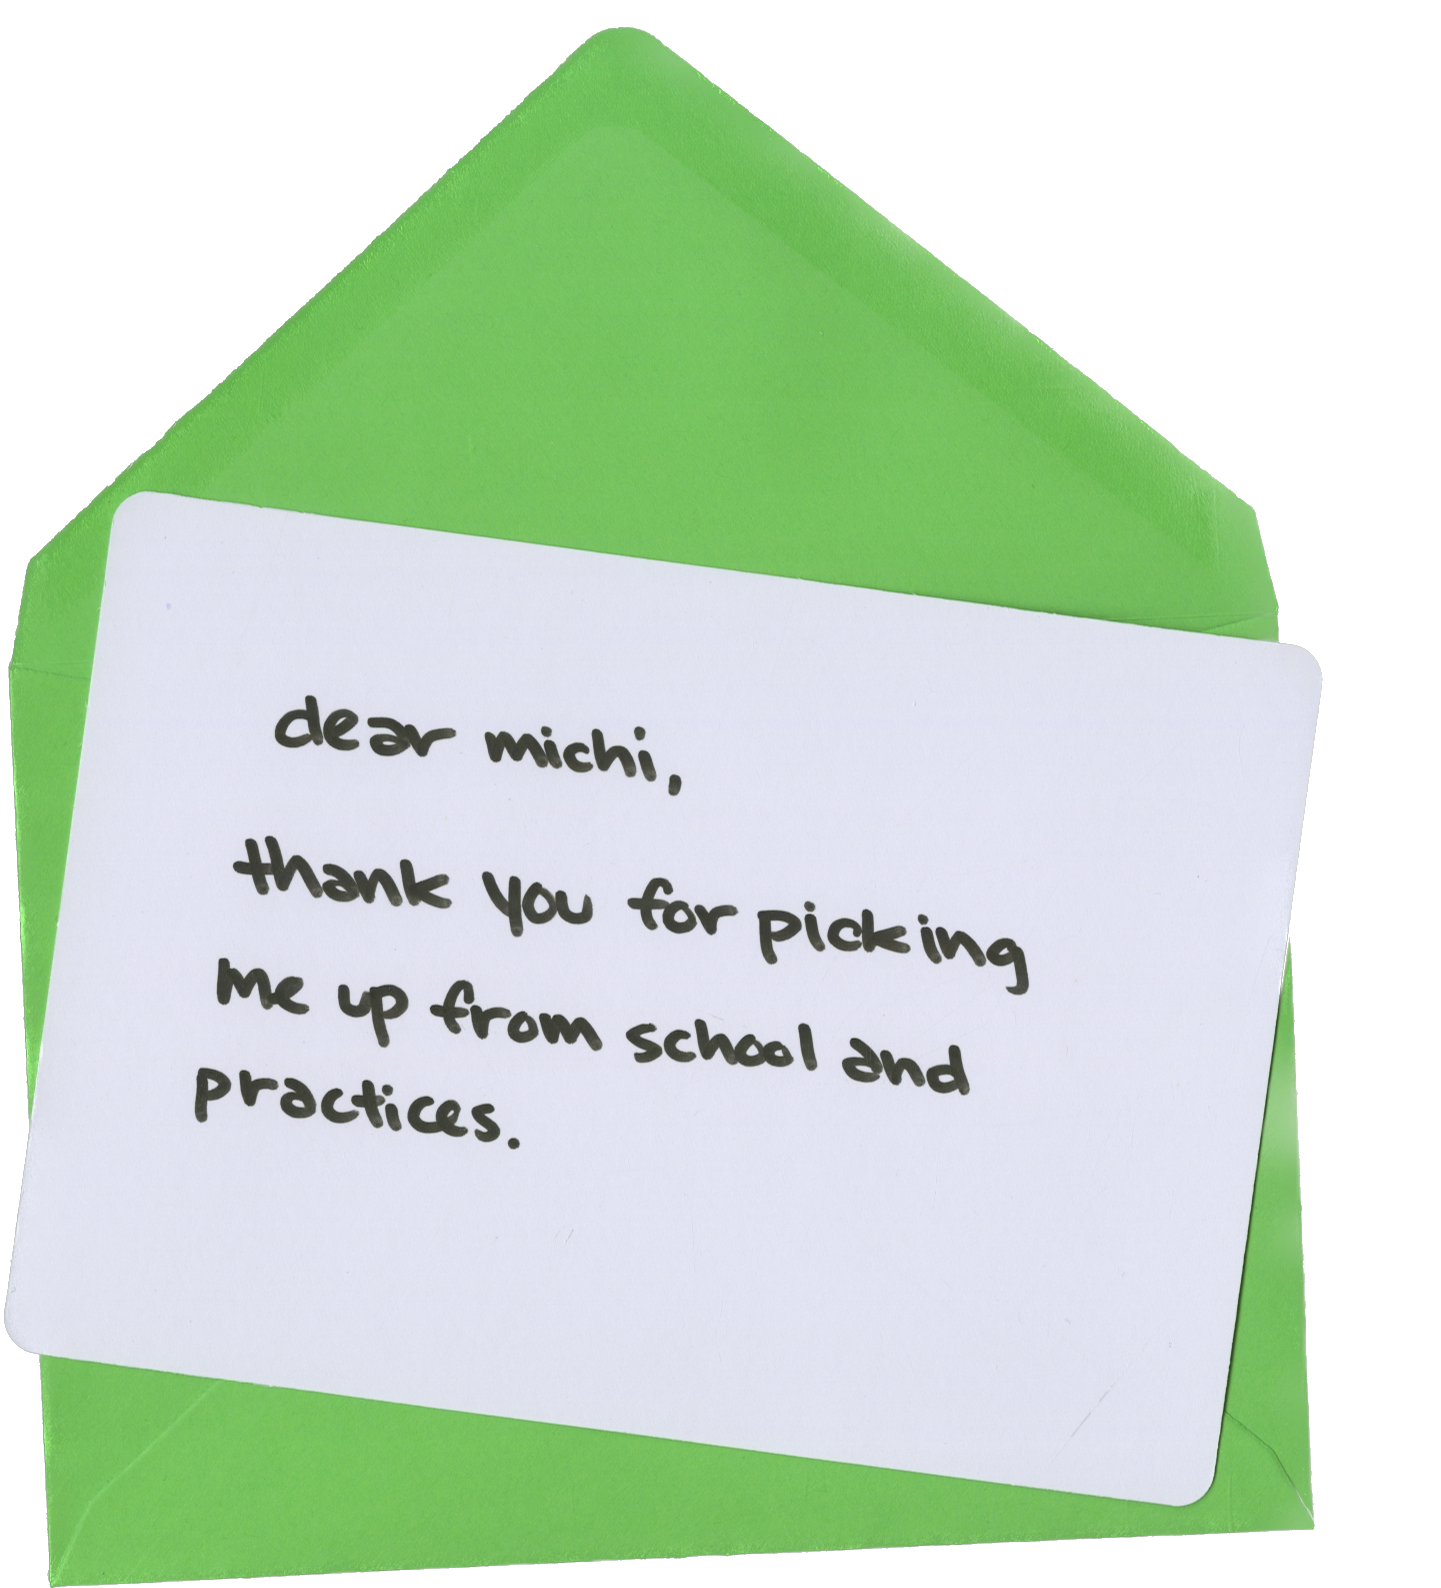 dear michi,
thank you for picking
me up from school and
practices.